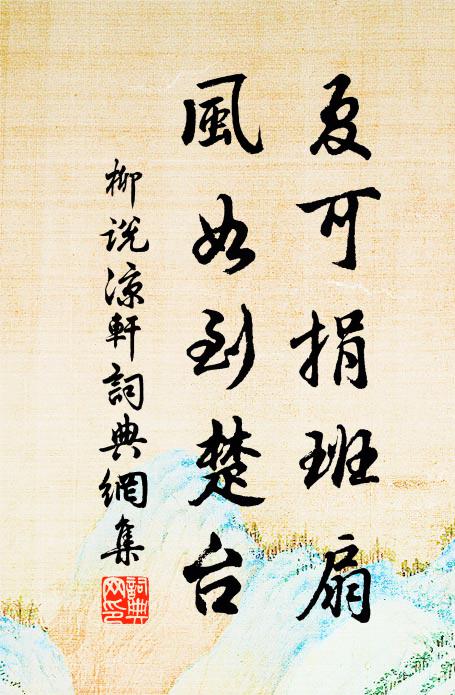 夏可捐班扇
風如到楚台
柳说凉軒詞典網集
詞典
网印